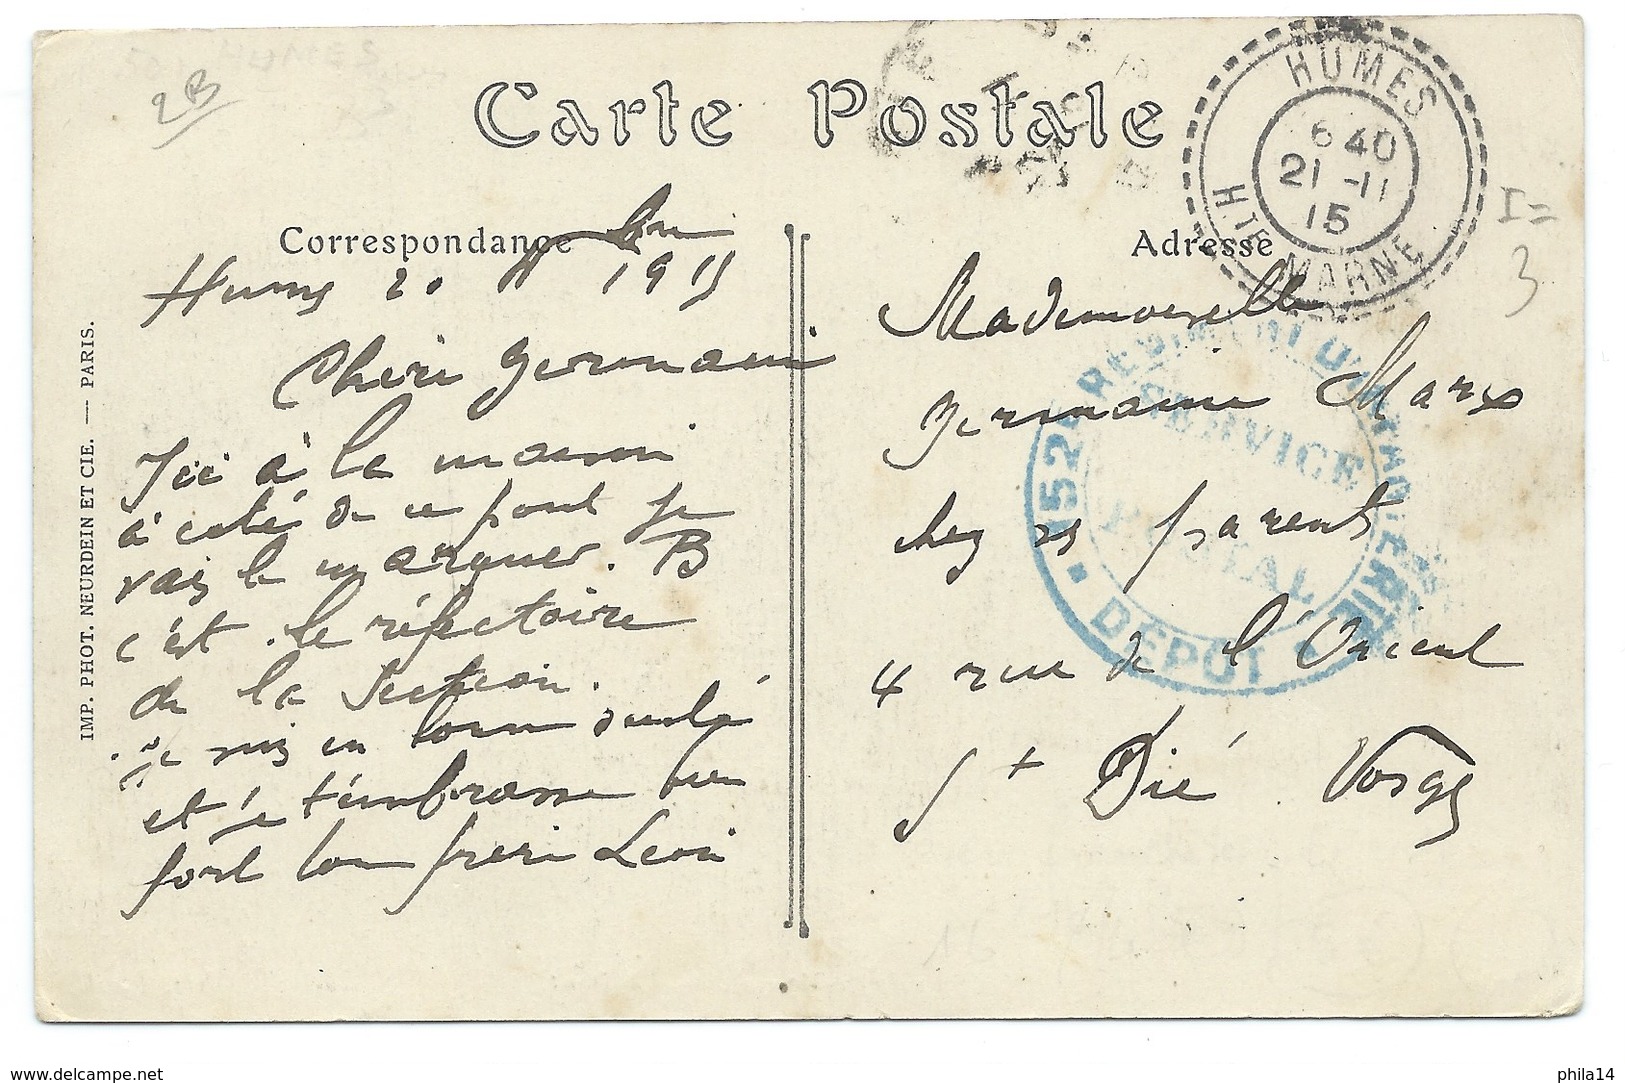 2B
Carte Postale
HUMES
6 40
21 -11
15
HTE MARNE
I =
3
Correspondance
Adresse
Humes 20 9bre 1915
Chère Germaine
Ici à la maison
à coté de ce pont je
vais le marquer. B
c'est le réfectoire
de la Section.
je suis en bonne santé
et je t'embrasse bien
fort ton frère Léon
Mademoiselle
Germaine Marx
chez ses parents
4 rue de l'Orient
St Dié. Vosges
152E REGIMENT D'INFANTERIE
SERVICE
POSTAL
DEPOT
IMP. PHOT. NEURDEIN ET CIE. — PARIS.
www.delcampe.net
phila14